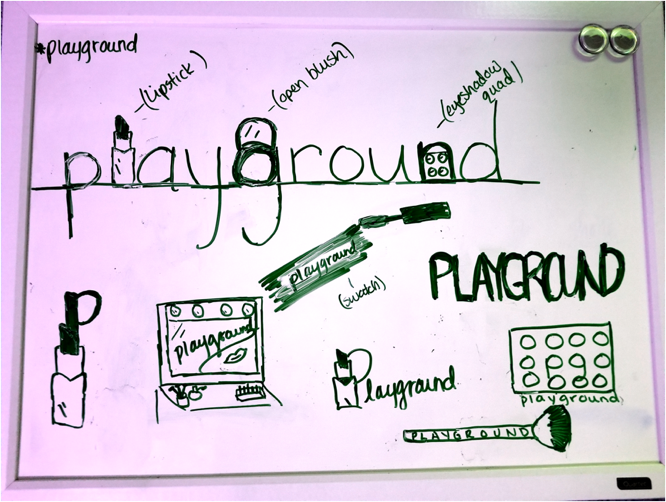 *playground
-(lipstick)
-(open blush)
-(eyeshadow quad)
playground
playground
(swatch)
PLAYGROUND
P
playground
playground
pg
playground
PLAYGROUND